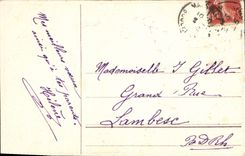 Mes meilleurs vœux
ainsi qu'à tes parents.
Mademoiselle J Gillet
Grand Rue
Lambesc
B D Rh